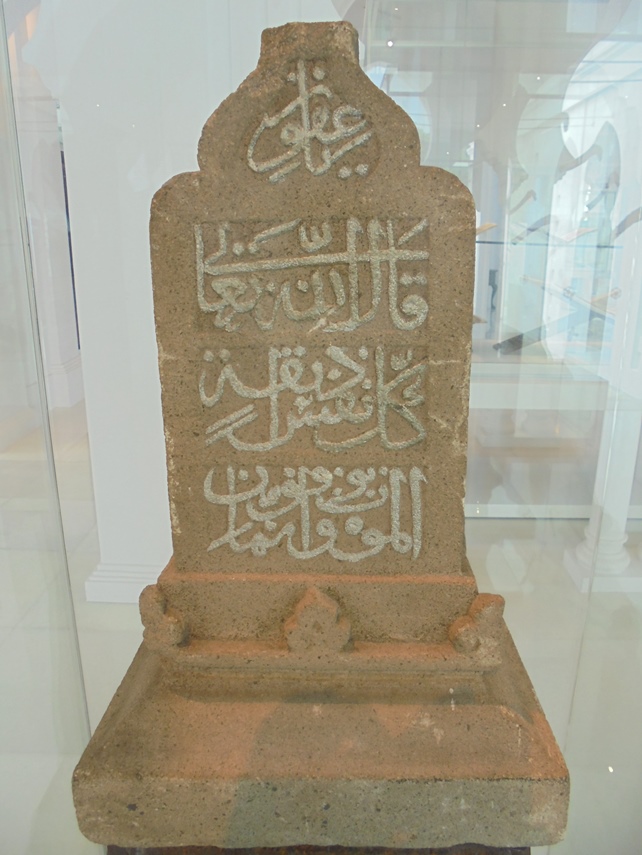 يا غفور
قال الله تعالى
كل نفس ذيقة
الموت وانما توفون